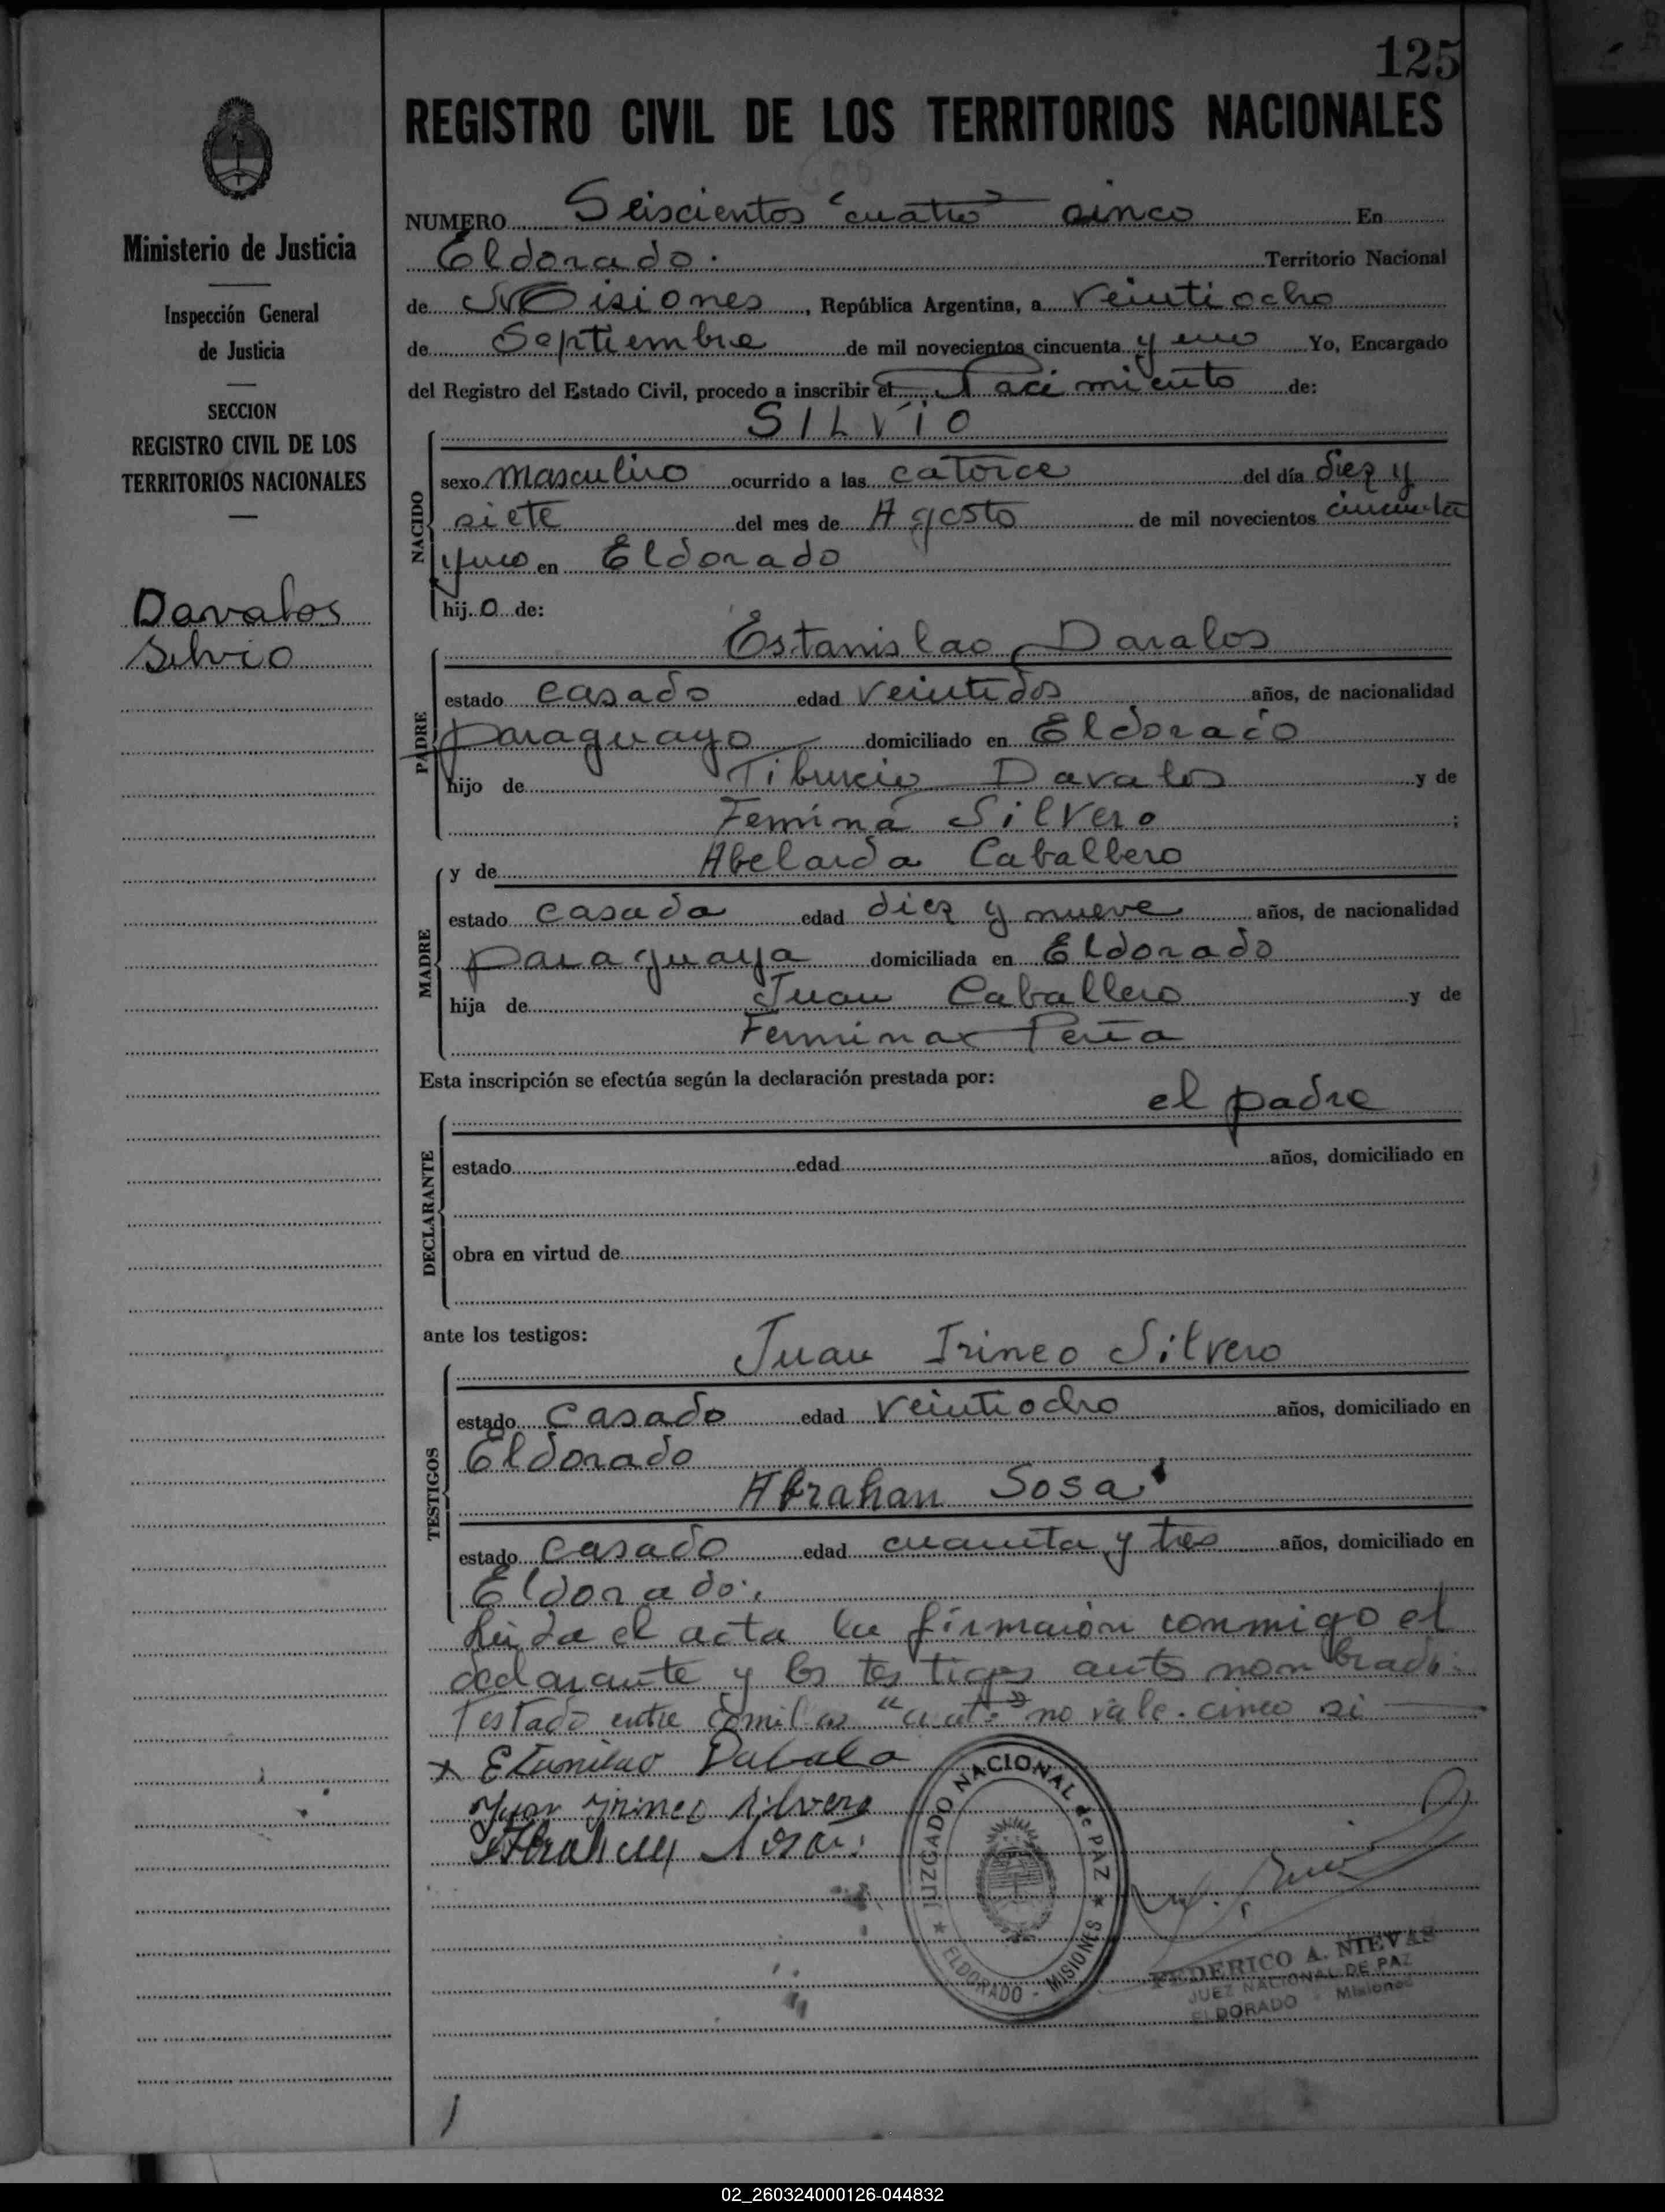 125
REGISTRO CIVIL DE LOS TERRITORIOS NACIONALES
Ministerio de Justicia
Inspección General
de Justicia
SECCION
REGISTRO CIVIL DE LOS
TERRITORIOS NACIONALES
Davalos
Silvio
NUMERO Seiscientos "cuatro" cinco En
Eldorado. Territorio Nacional
de Misiones, República Argentina, a veintiocho
de Septiembre de mil novecientos cincuenta y uno Yo, Encargado
del Registro del Estado Civil, procedo a inscribir el Nacimiento de:
SILVIO
NACIDO
sexo masculino ocurrido a las catorce del día diez y
siete del mes de Agosto de mil novecientos cincuenta
y uno en Eldorado
hijo de:
Estanislao Davalos
PADRE
estado casado edad veintidos años, de nacionalidad
paraguayo domiciliado en Eldorado
hijo de Tiburcio Davalos y de
Femina Silvero ;
y de Abelarda Caballero
MADRE
estado casada edad diez y nueve años, de nacionalidad
paraguaya domiciliada en Eldorado
hija de Juan Caballero y de
Fermina Peña
Esta inscripción se efectúa según la declaración prestada por:
el padre
DECLARANTE
estado edad años, domiciliado en
obra en virtud de
ante los testigos:
Juan Irineo Silvero
TESTIGOS
estado casado edad veintiocho años, domiciliado en
Eldorado
Abrahan Sosa
estado casado edad cuarenta y tres años, domiciliado en
Eldorado.
Leida el acta la firmaron conmigo el
declarante y los testigos antes nombrados.
Testado entre comillas "cuatro" no vale. cinco si
x Etanilao Dabalo
Juan Yrineo Silvero
Abrahan Sosa
JUZGADO NACIONAL de PAZ
ELDORADO - MISIONES
FEDERICO A. NIEVAS
JUEZ NACIONAL DE PAZ
ELDORADO - Misiones
02_260324000126-044832